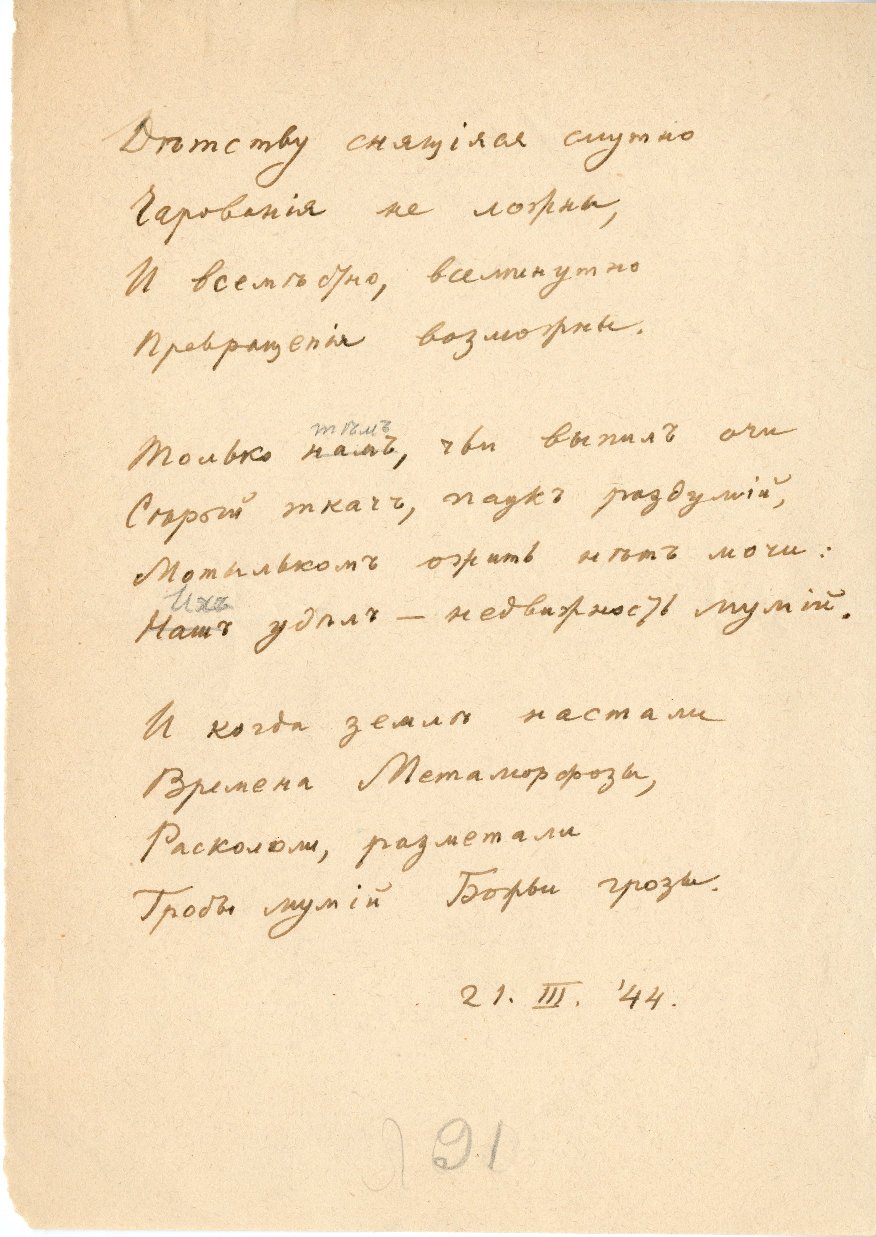 Дѣтству снящіяся смутно
Чарованія не ложны,
И всемѣстно, всеминутно
Превращенія возможны.
тѣмъ
Только намъ, чьи выпилъ очи
Старый ткачъ, паукъ раздумій,
Мотылькомъ ожить нѣтъ мочи:
Ихъ
Нашъ удѣлъ — недвижность мумій.
И когда землѣ настали
Времена Метаморфозы,
Раскололи, разметали
Гробы мумій Божьи грозы.
21. III. '44.
91